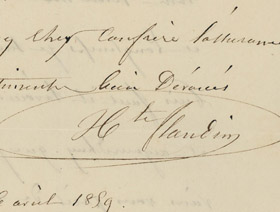 cher Confrère l'assurance
bien Dévoués
Hte flandin
août 1859.